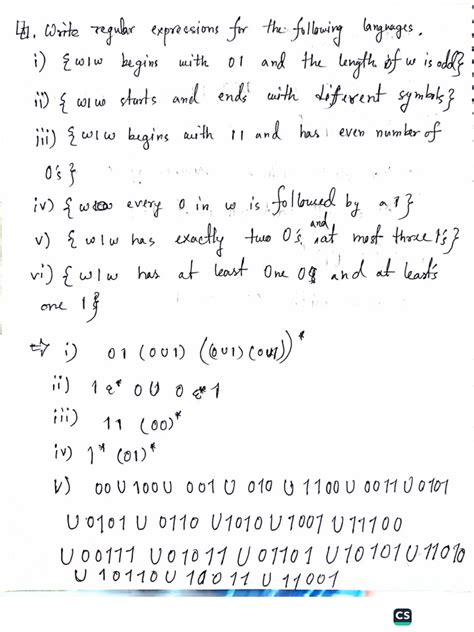 1. Write regular expressions for the following languages.
i) {w|w begins with 01 and the length of w is odd}
ii) {w|w starts and ends with different symbols}
iii) {w|w begins with 11 and has even number of
0's}
iv) {w every 0 in w is followed by a 1}
v) {w|w has exactly two 0's and at most three 1's}
vi) {w|w has at least One 0 and at least
one 1}
⇒ i) 01 (0∪1) ((0∪1)(0∪1))*
ii) 1 ε* 0 ∪ 0 ε* 1
iii) 11 (00)*
iv) 1* (01)*
v) 00 ∪ 100 ∪ 001 ∪ 010 ∪ 1100 ∪ 0011 ∪ 0101
∪ 0101 ∪ 0110 ∪ 1010 ∪ 1001 ∪ 11100
∪ 00111 ∪ 01011 ∪ 01101 ∪ 10101 ∪ 11010
∪ 10110 ∪ 10011 ∪ 11001
CS